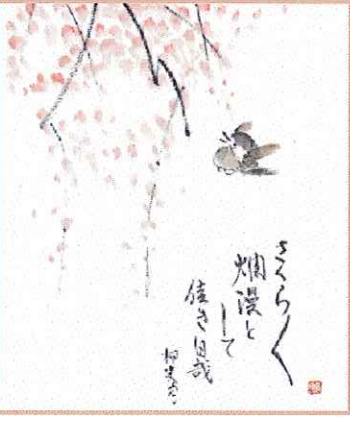 さくら〱
爛漫と
して
佳き日哉